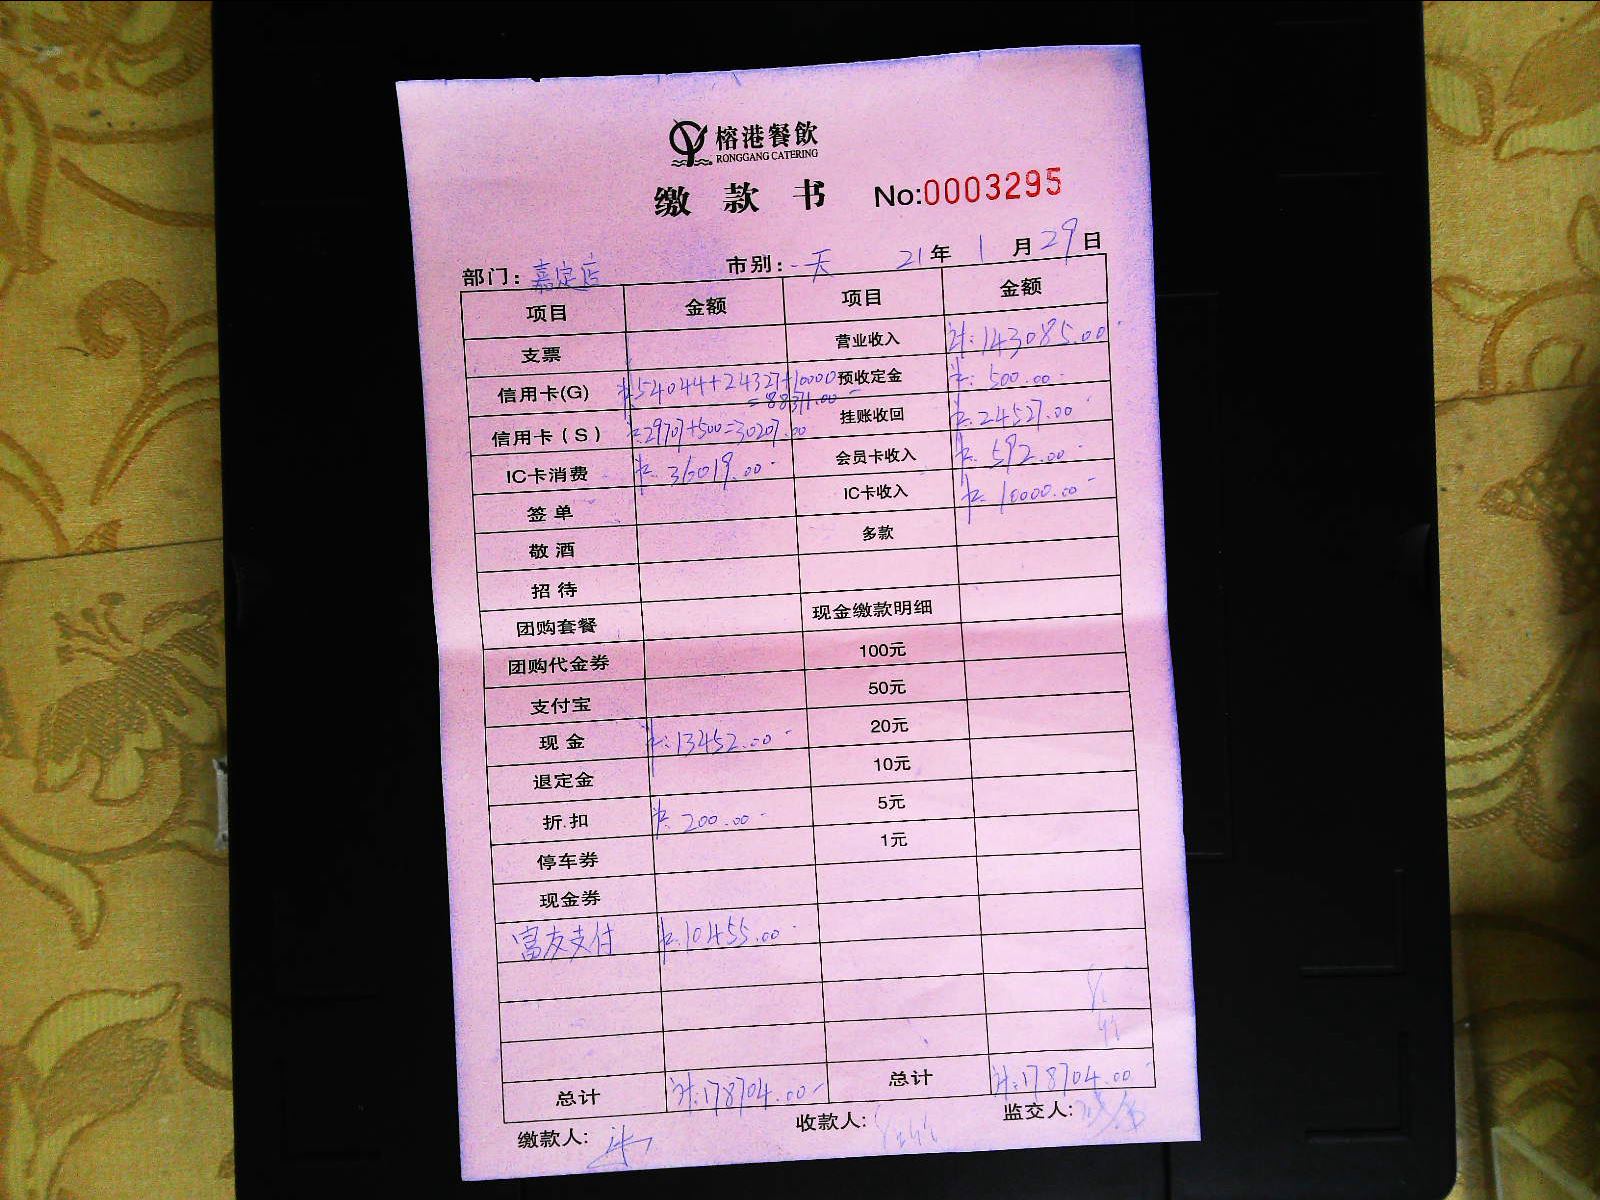 榕港餐飲
RONGGANG CATERING
缴 款 书 No:0003295
部门: 嘉定店 市别: 一天 21年 1月 29日
项目 金额 项目 金额
支票 营业收入 计: 143085.00
信用卡(G) 54044+24327+10000 =88371.00 预收定金 500.00
信用卡(S) 29707+500=30207.00 挂账收回 24527.00
IC卡消费 36019.00 会员卡收入 592.00
签 单 IC卡收入 10000.00
敬 酒 多款
招 待
团购套餐 现金缴款明细
团购代金券 100元
支付宝 50元
现 金 13452.00 20元
退定金 10元
折.扣 200.00 5元
停车券 1元
现金券
富友支付 10455.00
总计 计: 178704.00 总计 计: 178704.00
缴款人: 收款人: 监交人: